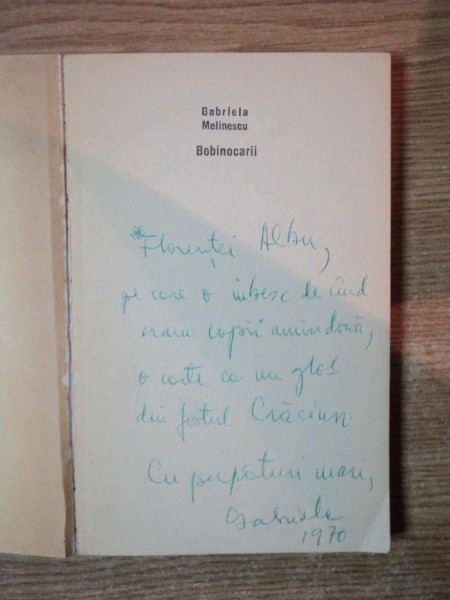 Gabriela
Melinescu
Bobinocarii
Florenței Albu,
pe care o iubesc de cînd
eram copii amîndouă,
o carte ca un glob
din fostul Crăciun.
Cu mari,
Gabriela
1970